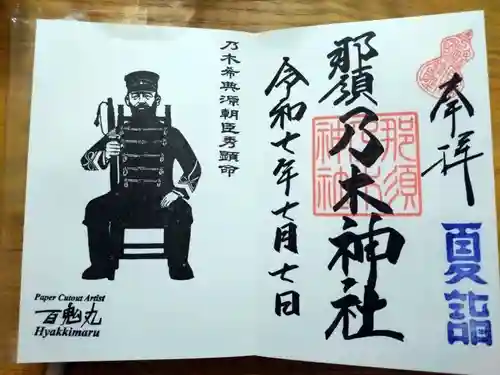 奉拝
夏詣
那須乃木神社
那須乃木神社
令和七年七月七日
乃木希典源朝臣秀顕命
Paper Cutout Artist
百鬼丸
Hyakkimaru